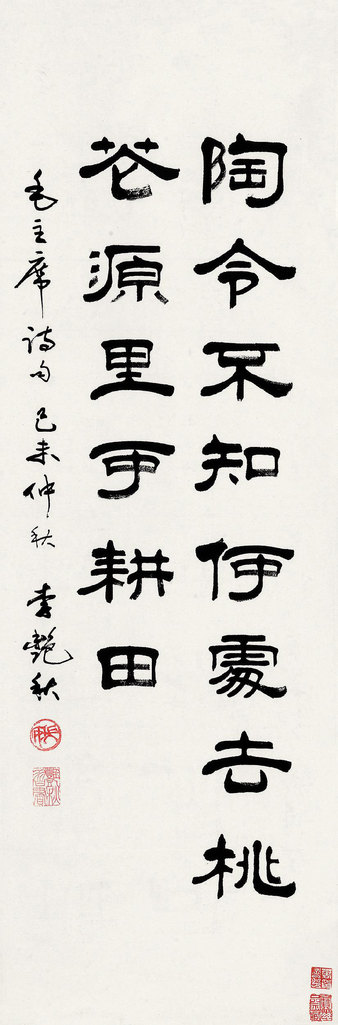 陶令不知何處去桃
花源里可耕田
毛主席诗句 己未仲秋 李艳秋